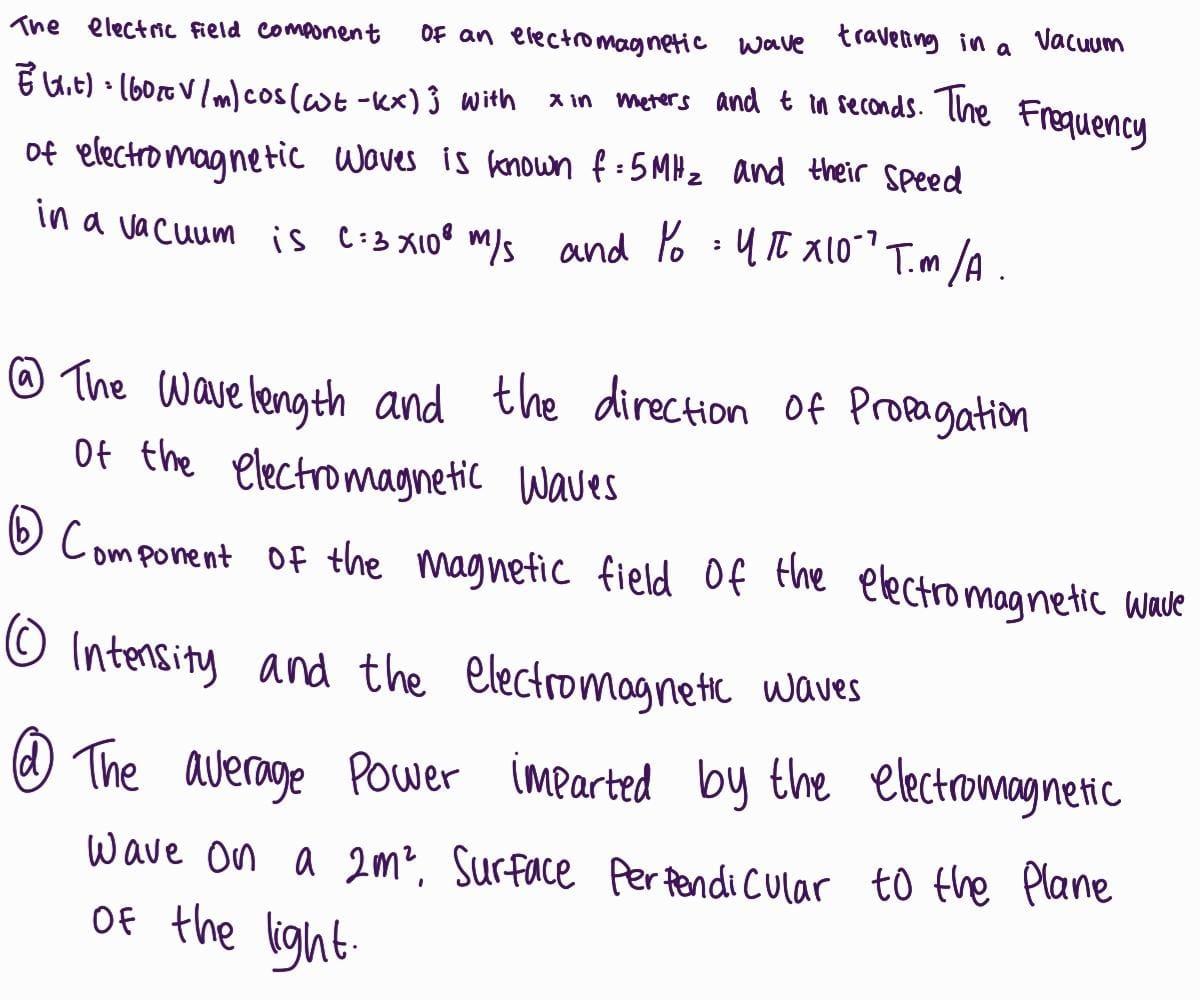 The electric field component of an electromagnetic wave traveling in a Vacuum
E⃗(x,t) = (60π V/m) cos(ωt - kx) ĵ with x in meters and t in seconds. The Frequency
of electromagnetic waves is known f = 5 MHz and their speed
in a vacuum is c = 3 x10⁸ m/s and μ₀ = 4π x10⁻⁷ T.m/A.
ⓐ The wavelength and the direction of Propagation
of the electromagnetic waves
ⓑ Component of the magnetic field of the electromagnetic wave
ⓒ Intensity and the electromagnetic waves
ⓓ The average Power imparted by the electromagnetic
wave on a 2m². Surface Perpendicular to the Plane
of the light.